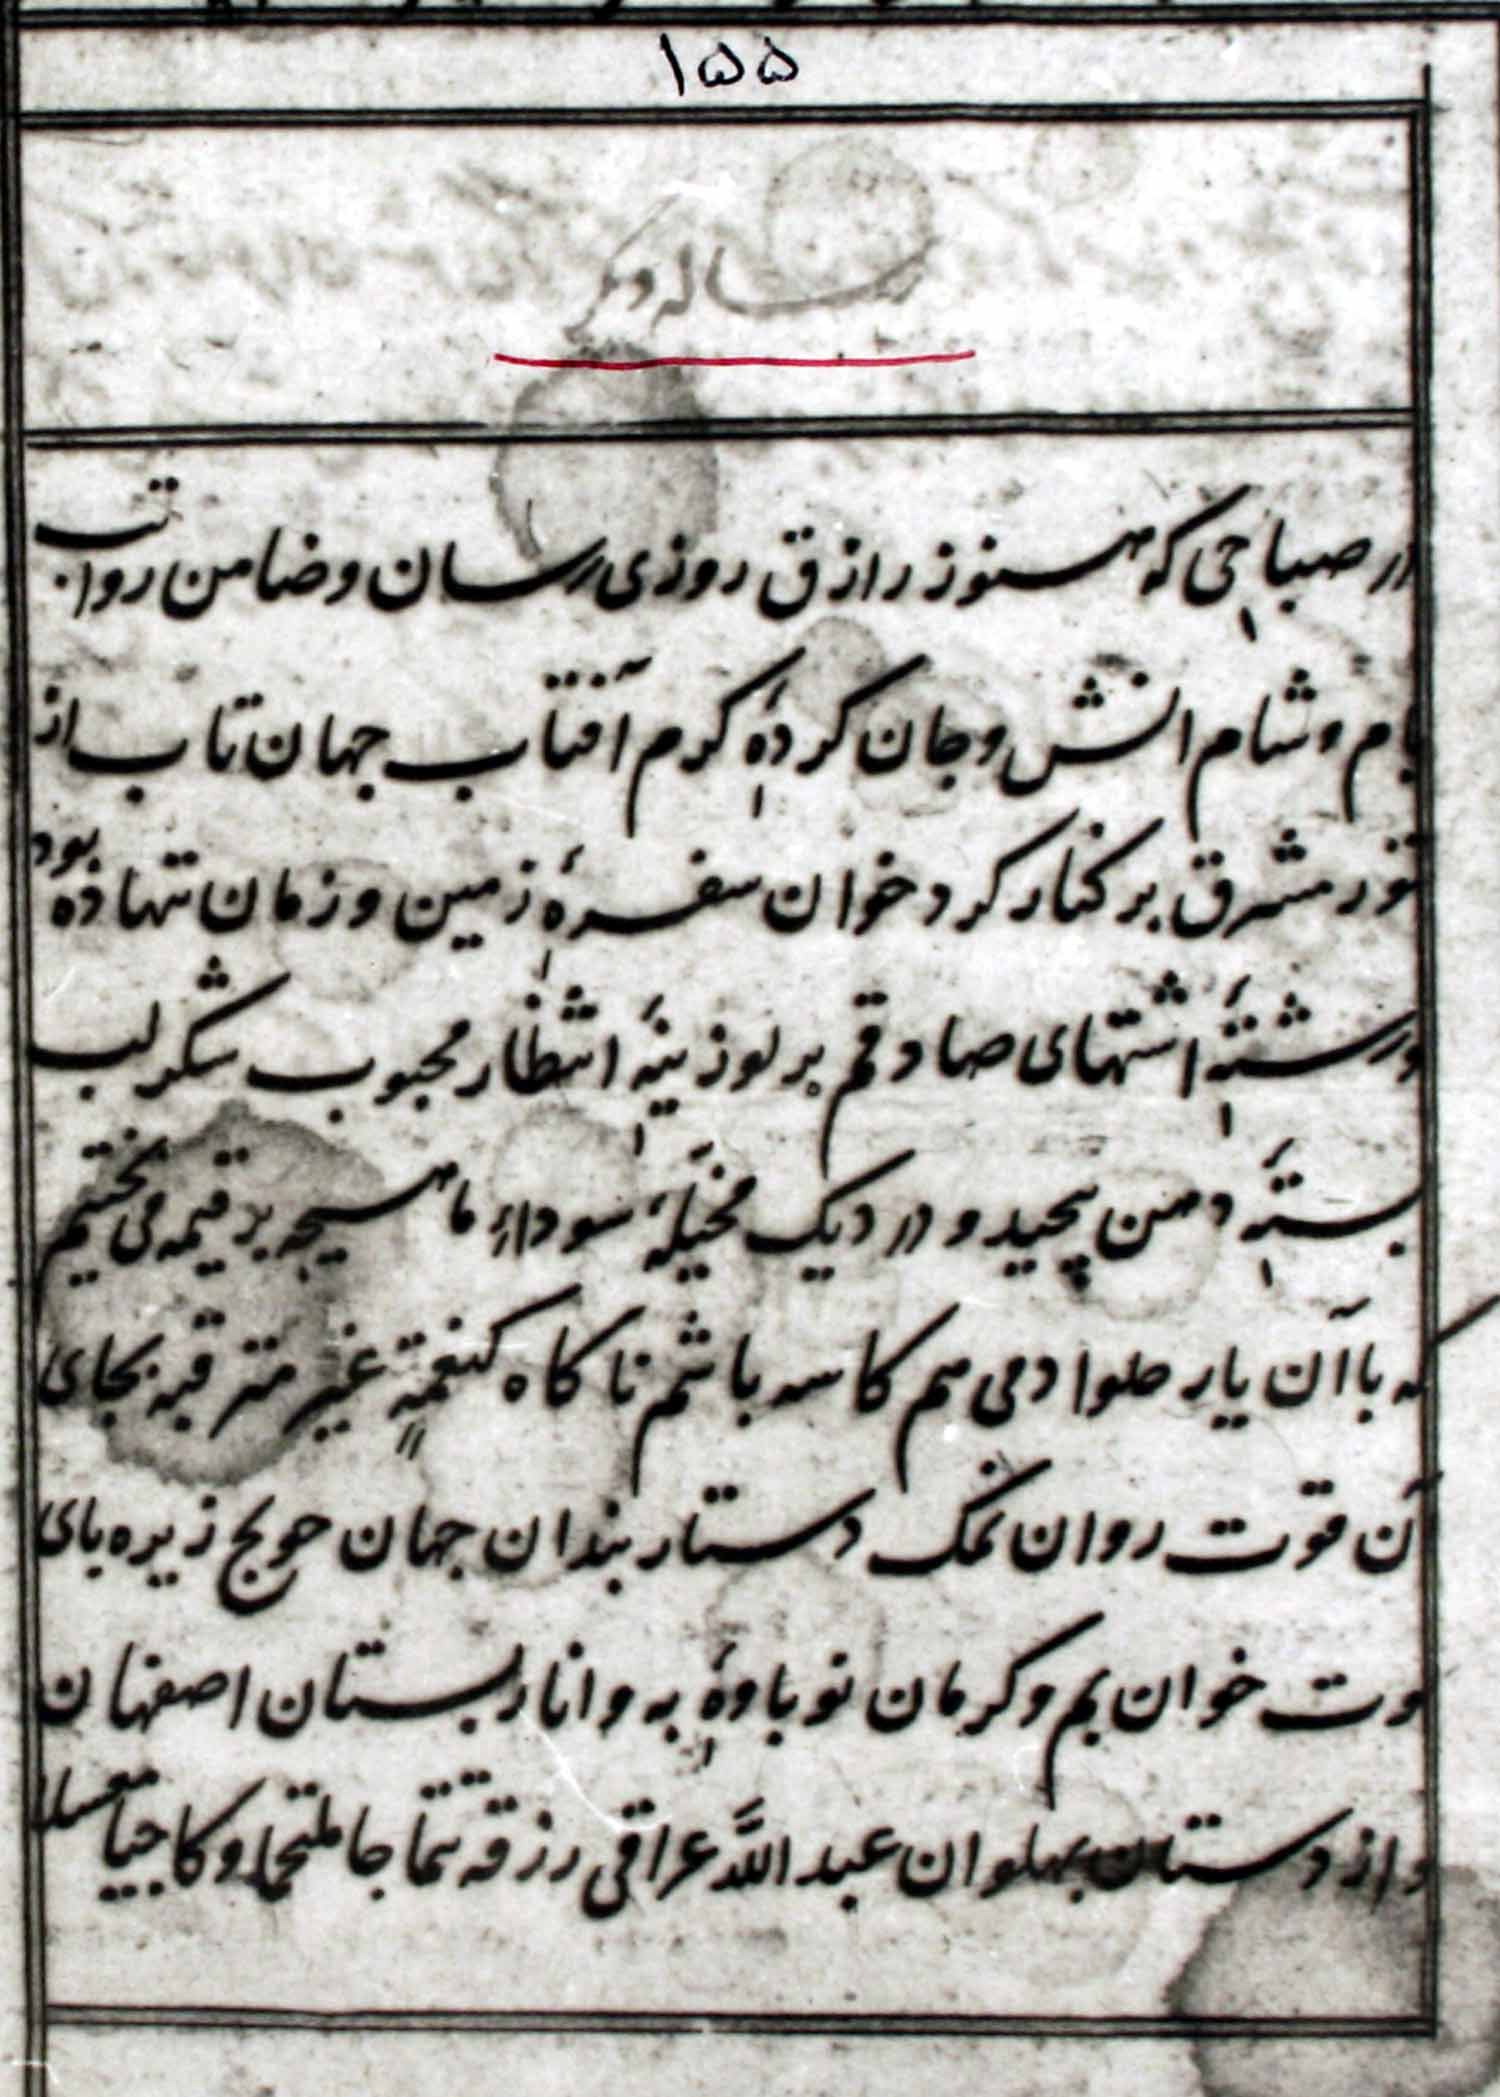 ۱۵۵
رساله دیگر
در صباحی که هنوز رازق روزی رسان و ضامن رواتب
بام و شام انس و جان کردهٔ کرم آفتاب جهان تاب از
تنور مشرق بر کنار کرد خوان سفرهٔ زمین و زمان ننهاده بود
و رشتهٔ اشتهای صادقم بر لوزینهٔ انتظار محبوب شکر لب
بستهٔ دهن پیچید و در دیک مخیلهٔ سودای ماهیچه بر قیمه می پختیم
که با آن یار حلوا دمی هم کاسه باشم ناکاه کنعمةٍ غیر مترقبه بجای
آن قوت روان نمک دستار بندان جهان حویج زیره بای
قوت خوان بم و کرمان نوباوهٔ به و انار بستان اصفهان
و از دستان پهلوان عبد اللّه عراقی رزقه